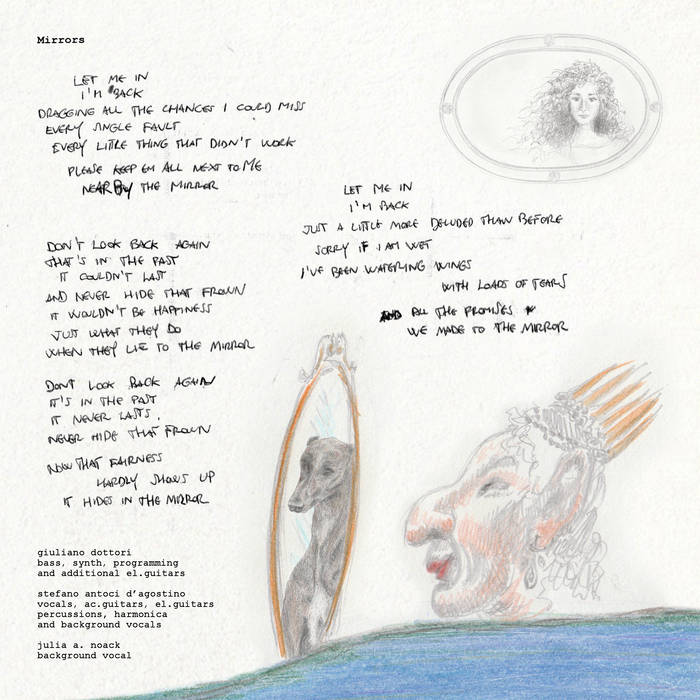 Mirrors
LET ME IN
I'M BACK
DRAGGING ALL THE CHANCES I COULD MISS
EVERY SINGLE FAULT
EVERY LITTLE THING THAT DIDN'T WORK
PLEASE KEEP EM ALL NEXT TO ME
NEARBY THE MIRROR
LET ME IN
I'M BACK
JUST A LITTLE MORE DELUDED THAN BEFORE
SORRY IF I AM WET
I'VE BEEN WATERING WINGS
WITH LOADS OF TEARS
AND ALL THE PROMISES
WE MADE TO THE MIRROR
DON'T LOOK BACK AGAIN
THAT'S IN THE PAST
IT COULDN'T LAST
AND NEVER HIDE THAT FROWN
IT WOULDN'T BE HAPPINESS
JUST WHAT THEY DO
WHEN THEY LIE TO THE MIRROR
DON'T LOOK BACK AGAIN
IT'S IN THE PAST
IT NEVER LASTS.
NEVER HIDE THAT FROWN
NOW THAT FAIRNESS
HARDLY SHOWS UP
IT HIDES IN THE MIRROR
giuliano dottori
bass, synth, programming
and additional el.guitars
stefano antoci d'agostino
vocals, ac.guitars, el.guitars
percussions, harmonica
and background vocals
julia a. noack
background vocal